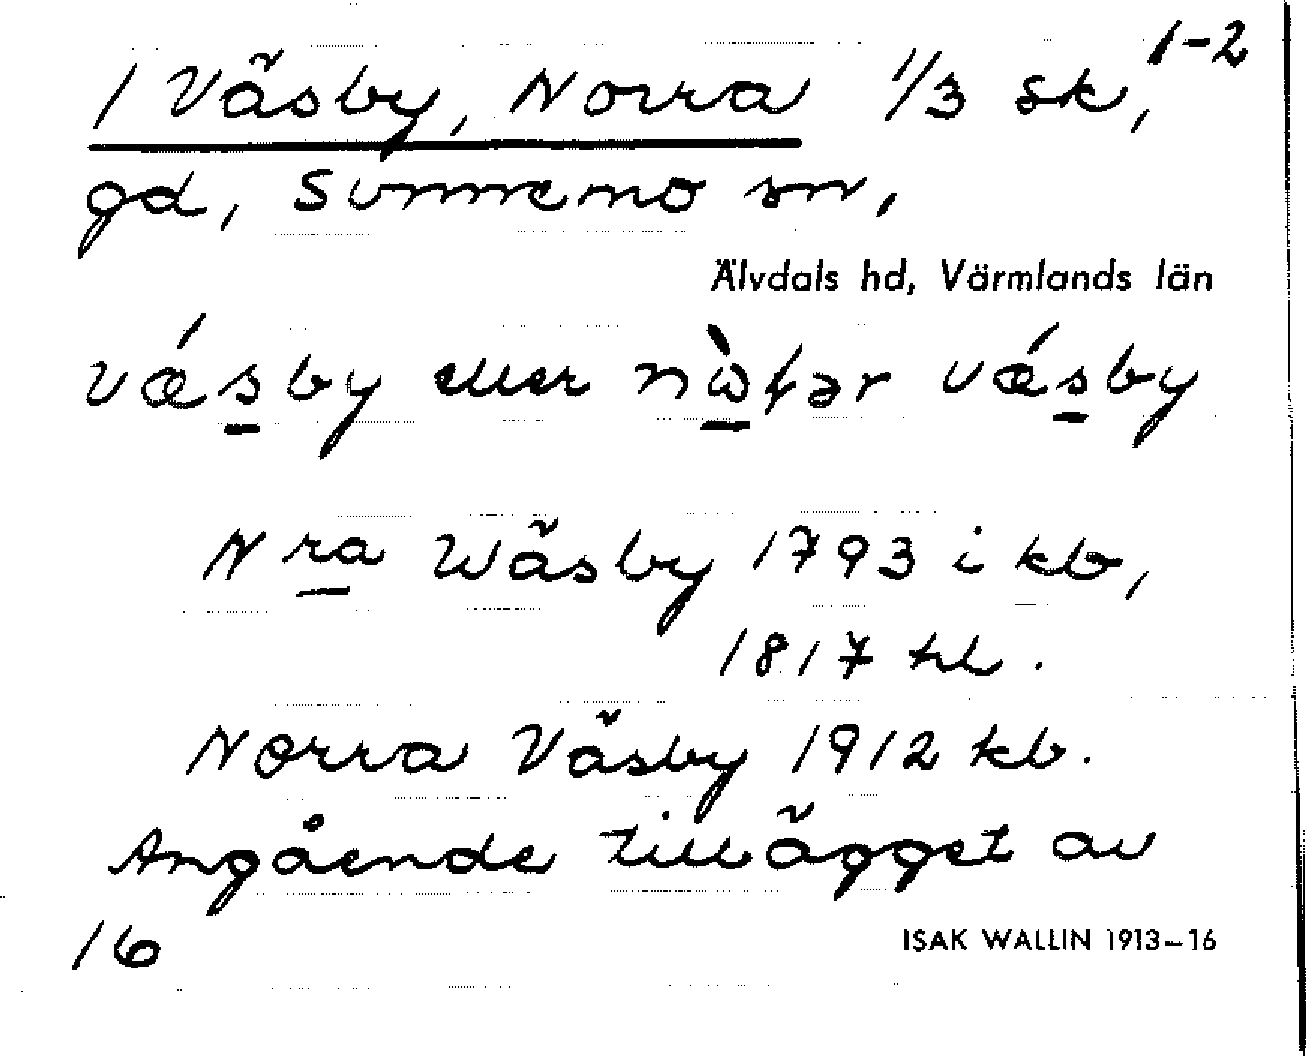 1-2
1 Väsby, Norra 1/3 sk,
gd, Sunnemo sn,
Älvdals hd, Värmlands län
vǽsby eller nɷ̀ʈər vǽsby
Nra Wäsby 1793 i kb,
1817 hl.
Norra Väsby 1912 kb.
Angående tillägget av
16
ISAK WALLIN 1913-16